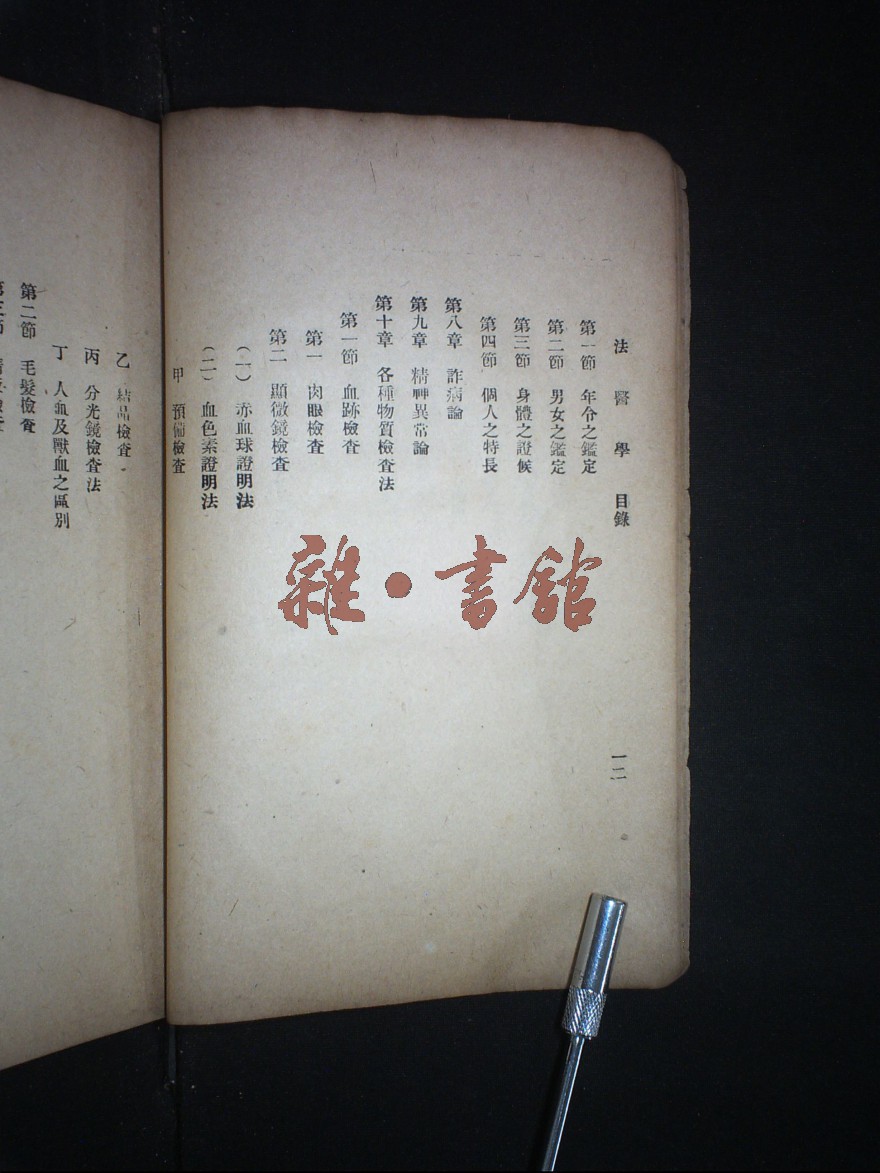 法醫學 目錄
一二
第一節 年令之鑑定
第二節 男女之鑑定
第三節 身體之證候
第四節 個人之特長
第八章 詐病論
第九章 精神異常論
第十章 各種物質檢查法
第一節 血跡檢查
第一 肉眼檢查
第二 顯微鏡檢查
(一) 赤血球證明法
(二) 血色素證明法
甲 預備檢查
乙 結晶檢查
丙 分光鏡檢查法
丁 人血及獸血之區別
第二節 毛髮檢查
雜·書館